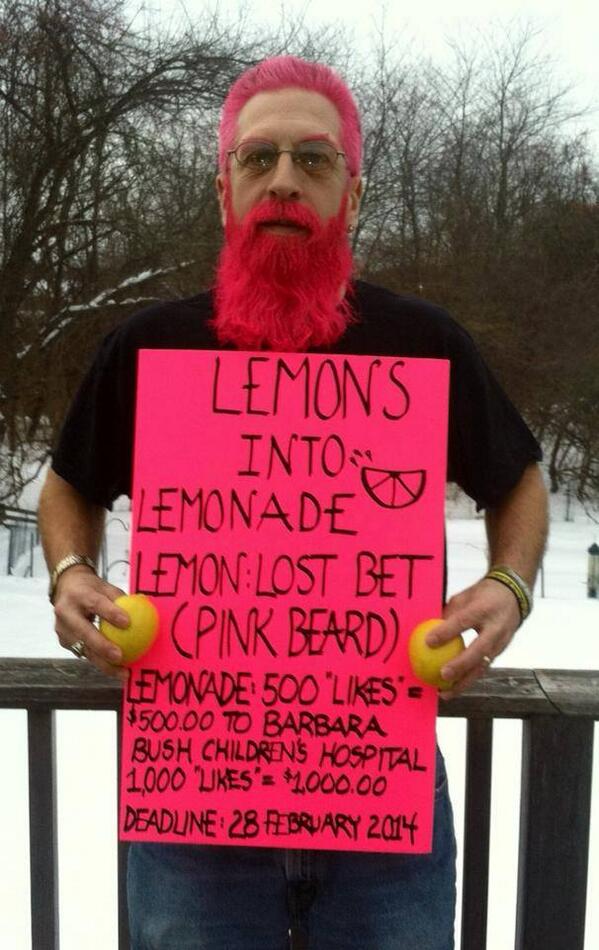 LEMONS
INTO
LEMONADE
LEMON: LOST BET
(PINK BEARD)
LEMONADE: 500 "LIKES" =
$500.00 TO BARBARA
BUSH CHILDREN'S HOSPITAL
1,000 "LIKES" = $1,000.00
DEADLINE: 28 FEBRUARY 2014